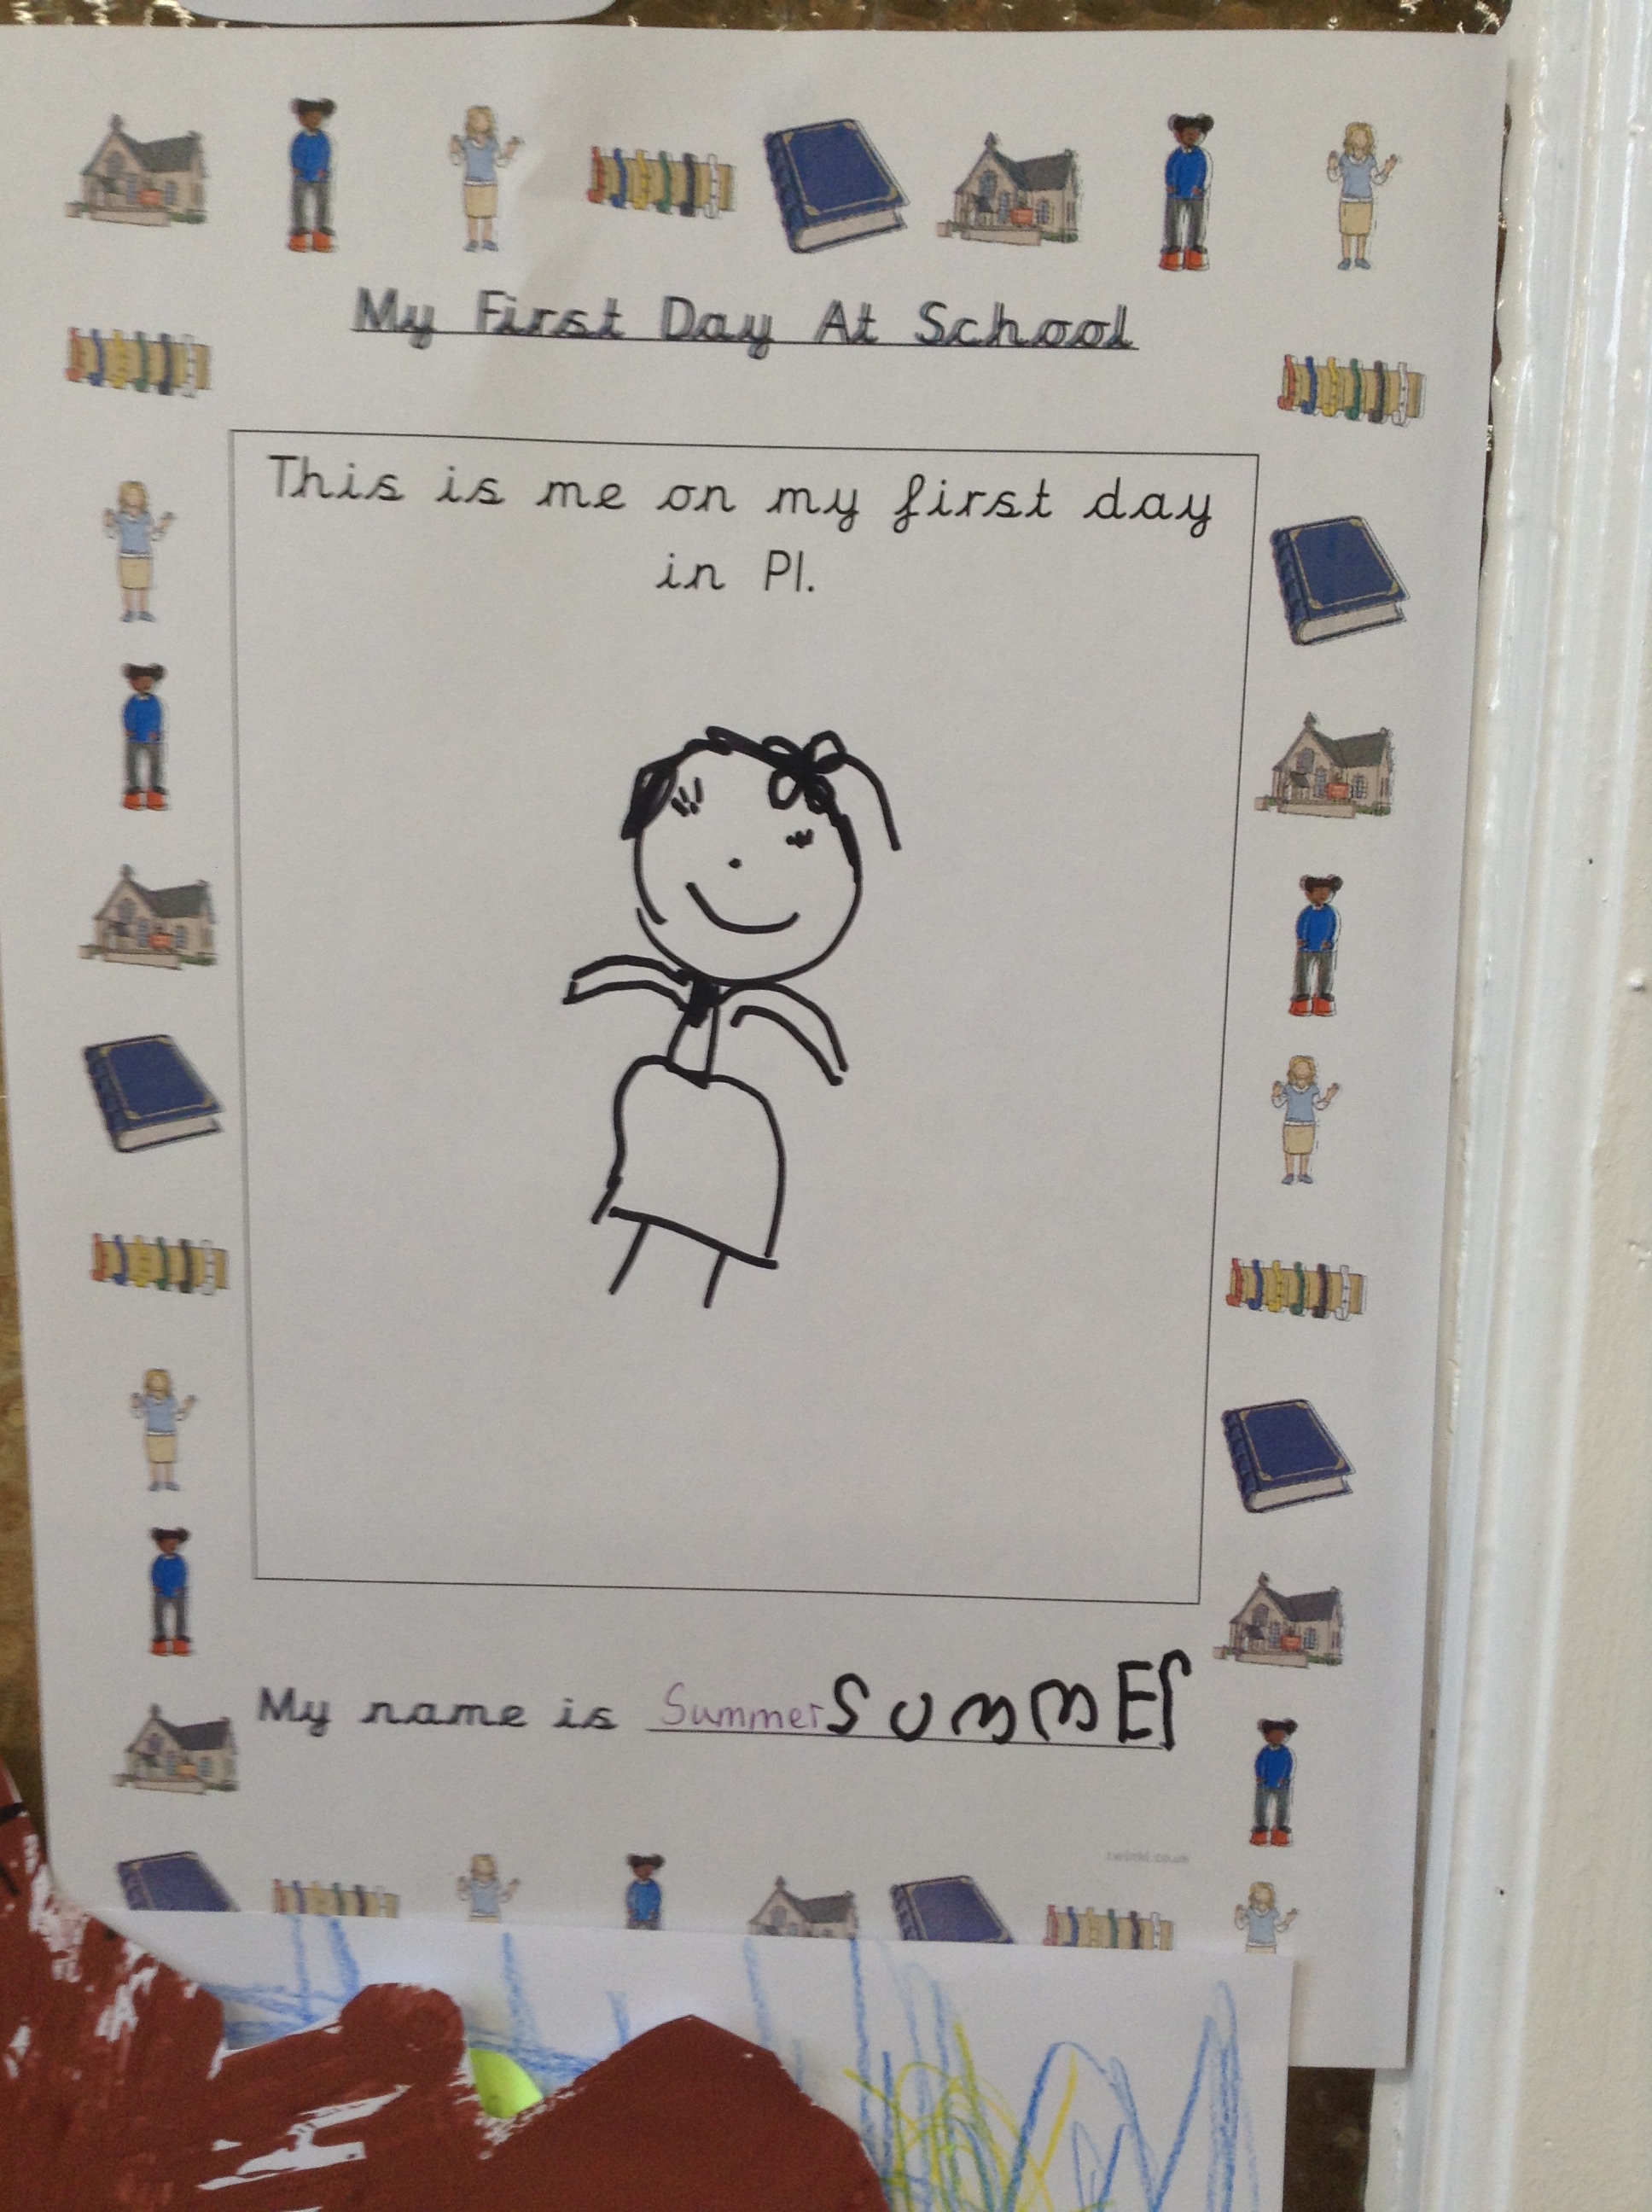 My First Day At School
This is me on my first day
in P1.
My name is Summer SummEr
twinkl.co.uk